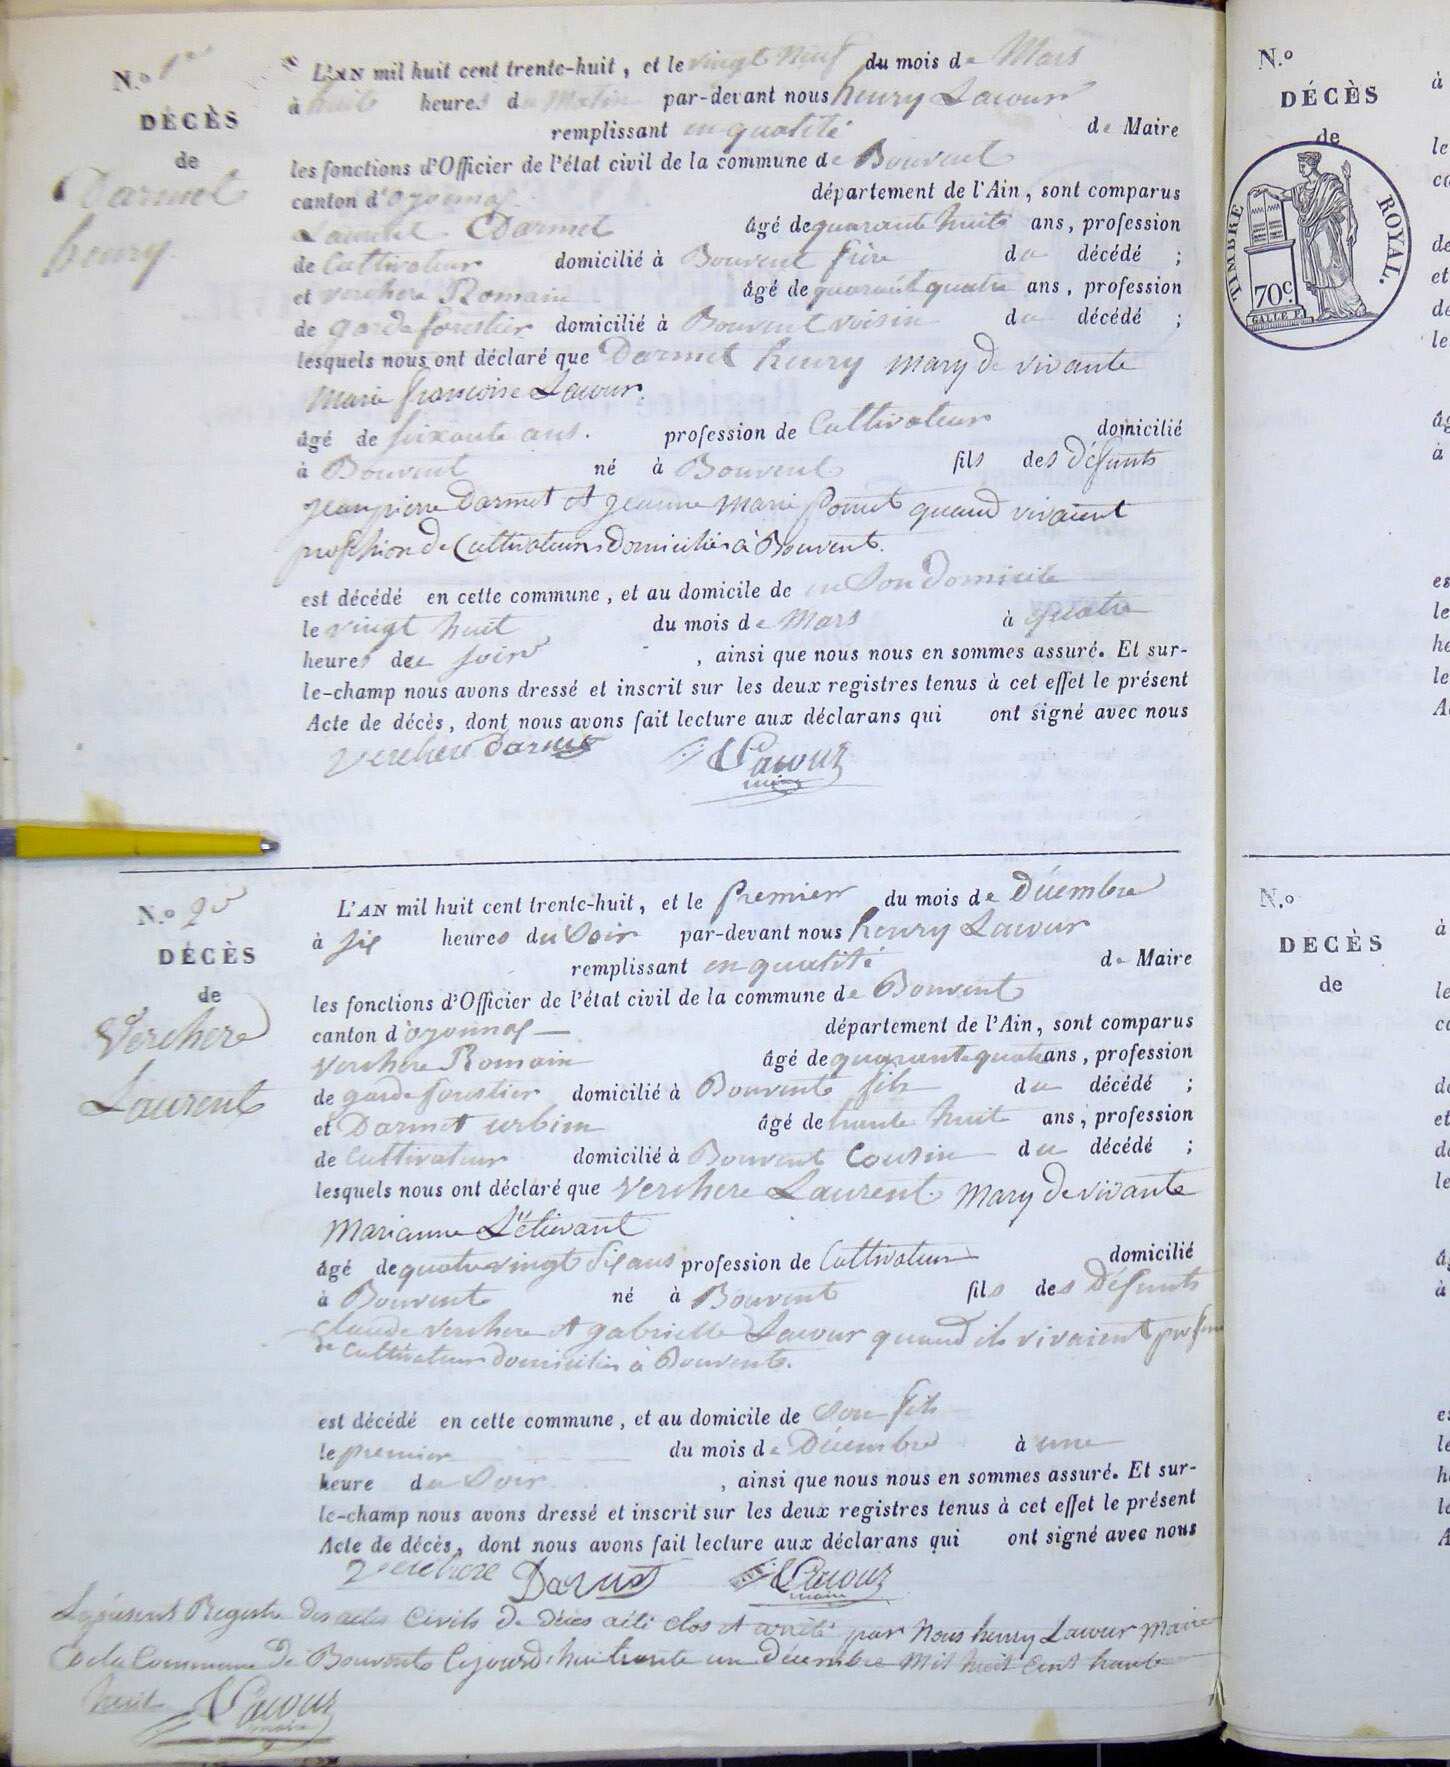 N.o 1er
DÉCÈS
de
Darmet
henry.
L'AN mil huit cent trente-huit, et le vingt Neuf du mois de Mars
à huit heures du Matin par-devant nous henry Lacour
remplissant en qualité de Maire
les fonctions d'Officier de l'état civil de la commune de Bouvent
canton d'oyonnax département de l'Ain, sont comparus
Laurent Darmet âgé de quarante huit ans, profession
de Cultivateur domicilié à Bouvent frère du décédé ;
et verchere Romain âgé de quarante quatre ans, profession
de garde forestier domicilié à Bouvent voisin du décédé ;
lesquels nous ont déclaré que Darmet henry mary de vivante
Marie françoise Lacour.
âgé de soixante ans. profession de Cultivateur domicilié
à Bouvent né à Bouvent fils des Défunts
jeanpierre Darmet et jeanne Marie quand vivaient
profession de Cultivateurs Domiciliés à Bouvent.
est décédé en cette commune, et au domicile de en Son Domicile
le vingt huit du mois de Mars à quatre
heures du soir , ainsi que nous nous en sommes assuré. Et sur-
le-champ nous avons dressé et inscrit sur les deux registres tenus à cet effet le présent
Acte de décès, dont nous avons fait lecture aux déclarans qui ont signé avec nous
Verchere Darmet Lacour
maire
N.o 2
DÉCÈS
de
Verchere
Laurent
L'AN mil huit cent trente-huit, et le premier du mois de Décembre
à six heures du Soir par-devant nous henry Lacour
remplissant en qualité de Maire
les fonctions d'Officier de l'état civil de la commune de Bouvent
canton d'oyonnax département de l'Ain, sont comparus
Verchere Romain âgé de quarante quatre ans, profession
de garde forestier domicilié à Bouvent fils du décédé ;
et Darmet urbin âgé de trente huit ans, profession
de Cultivateur domicilié à Bouvent Cousin du décédé ;
lesquels nous ont déclaré que Verchere Laurent mary de vivante
Marianne L'étievant
âgé de quatre vingt dix ans profession de Cultivateur domicilié
à Bouvent né à Bouvent fils des Défunts
Claude Verchere et gabrielle Lacour quand ils vivaient
de Cultivateurs domiciliés à Bouvent.
est décédé en cette commune, et au domicile de Son fils
le premier du mois de Décembre à une
heure du Soir , ainsi que nous nous en sommes assuré. Et sur-
le-champ nous avons dressé et inscrit sur les deux registres tenus à cet effet le présent
Acte de décès, dont nous avons fait lecture aux déclarans qui ont signé avec nous
Verchere Darmet Lacour
maire
Le présent Registre des actes Civils de Décès a été clos et arrêté par Nous henry Lacour Maire
de la Commune de Bouvent Cejourd'hui trente un Décembre Mil huit Cent trente
huit Lacour
maire
N.o
DÉCÈS
de
TIMBRE ROYAL.
70c.
GALLE F.
N.o
DECÈS
de